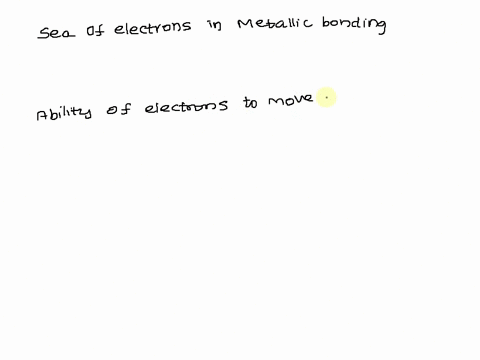 Sea of electrons in Metallic bonding
Ability of electrons to move